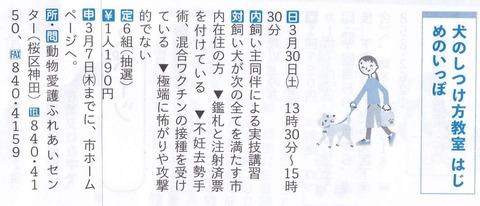 犬のしつけ方教室 はじ
めのいっぽ
日3月30日(土) 13時30分〜15時
30分
内飼い主同伴による実技講習
対飼い犬が次の全てを満たす市
内在住の方 ▼鑑札と注射済票
を付けている ▼不妊去勢手
術、混合ワクチンの接種を受け
ている ▼極端に怖がりや攻撃
的でない
定6組(抽選)
¥1人190円
申3月7日(木)までに、市ホーム
ページへ。
所・問動物愛護ふれあいセン
ター(桜区神田) TEL840・41
50、FAX840・4159